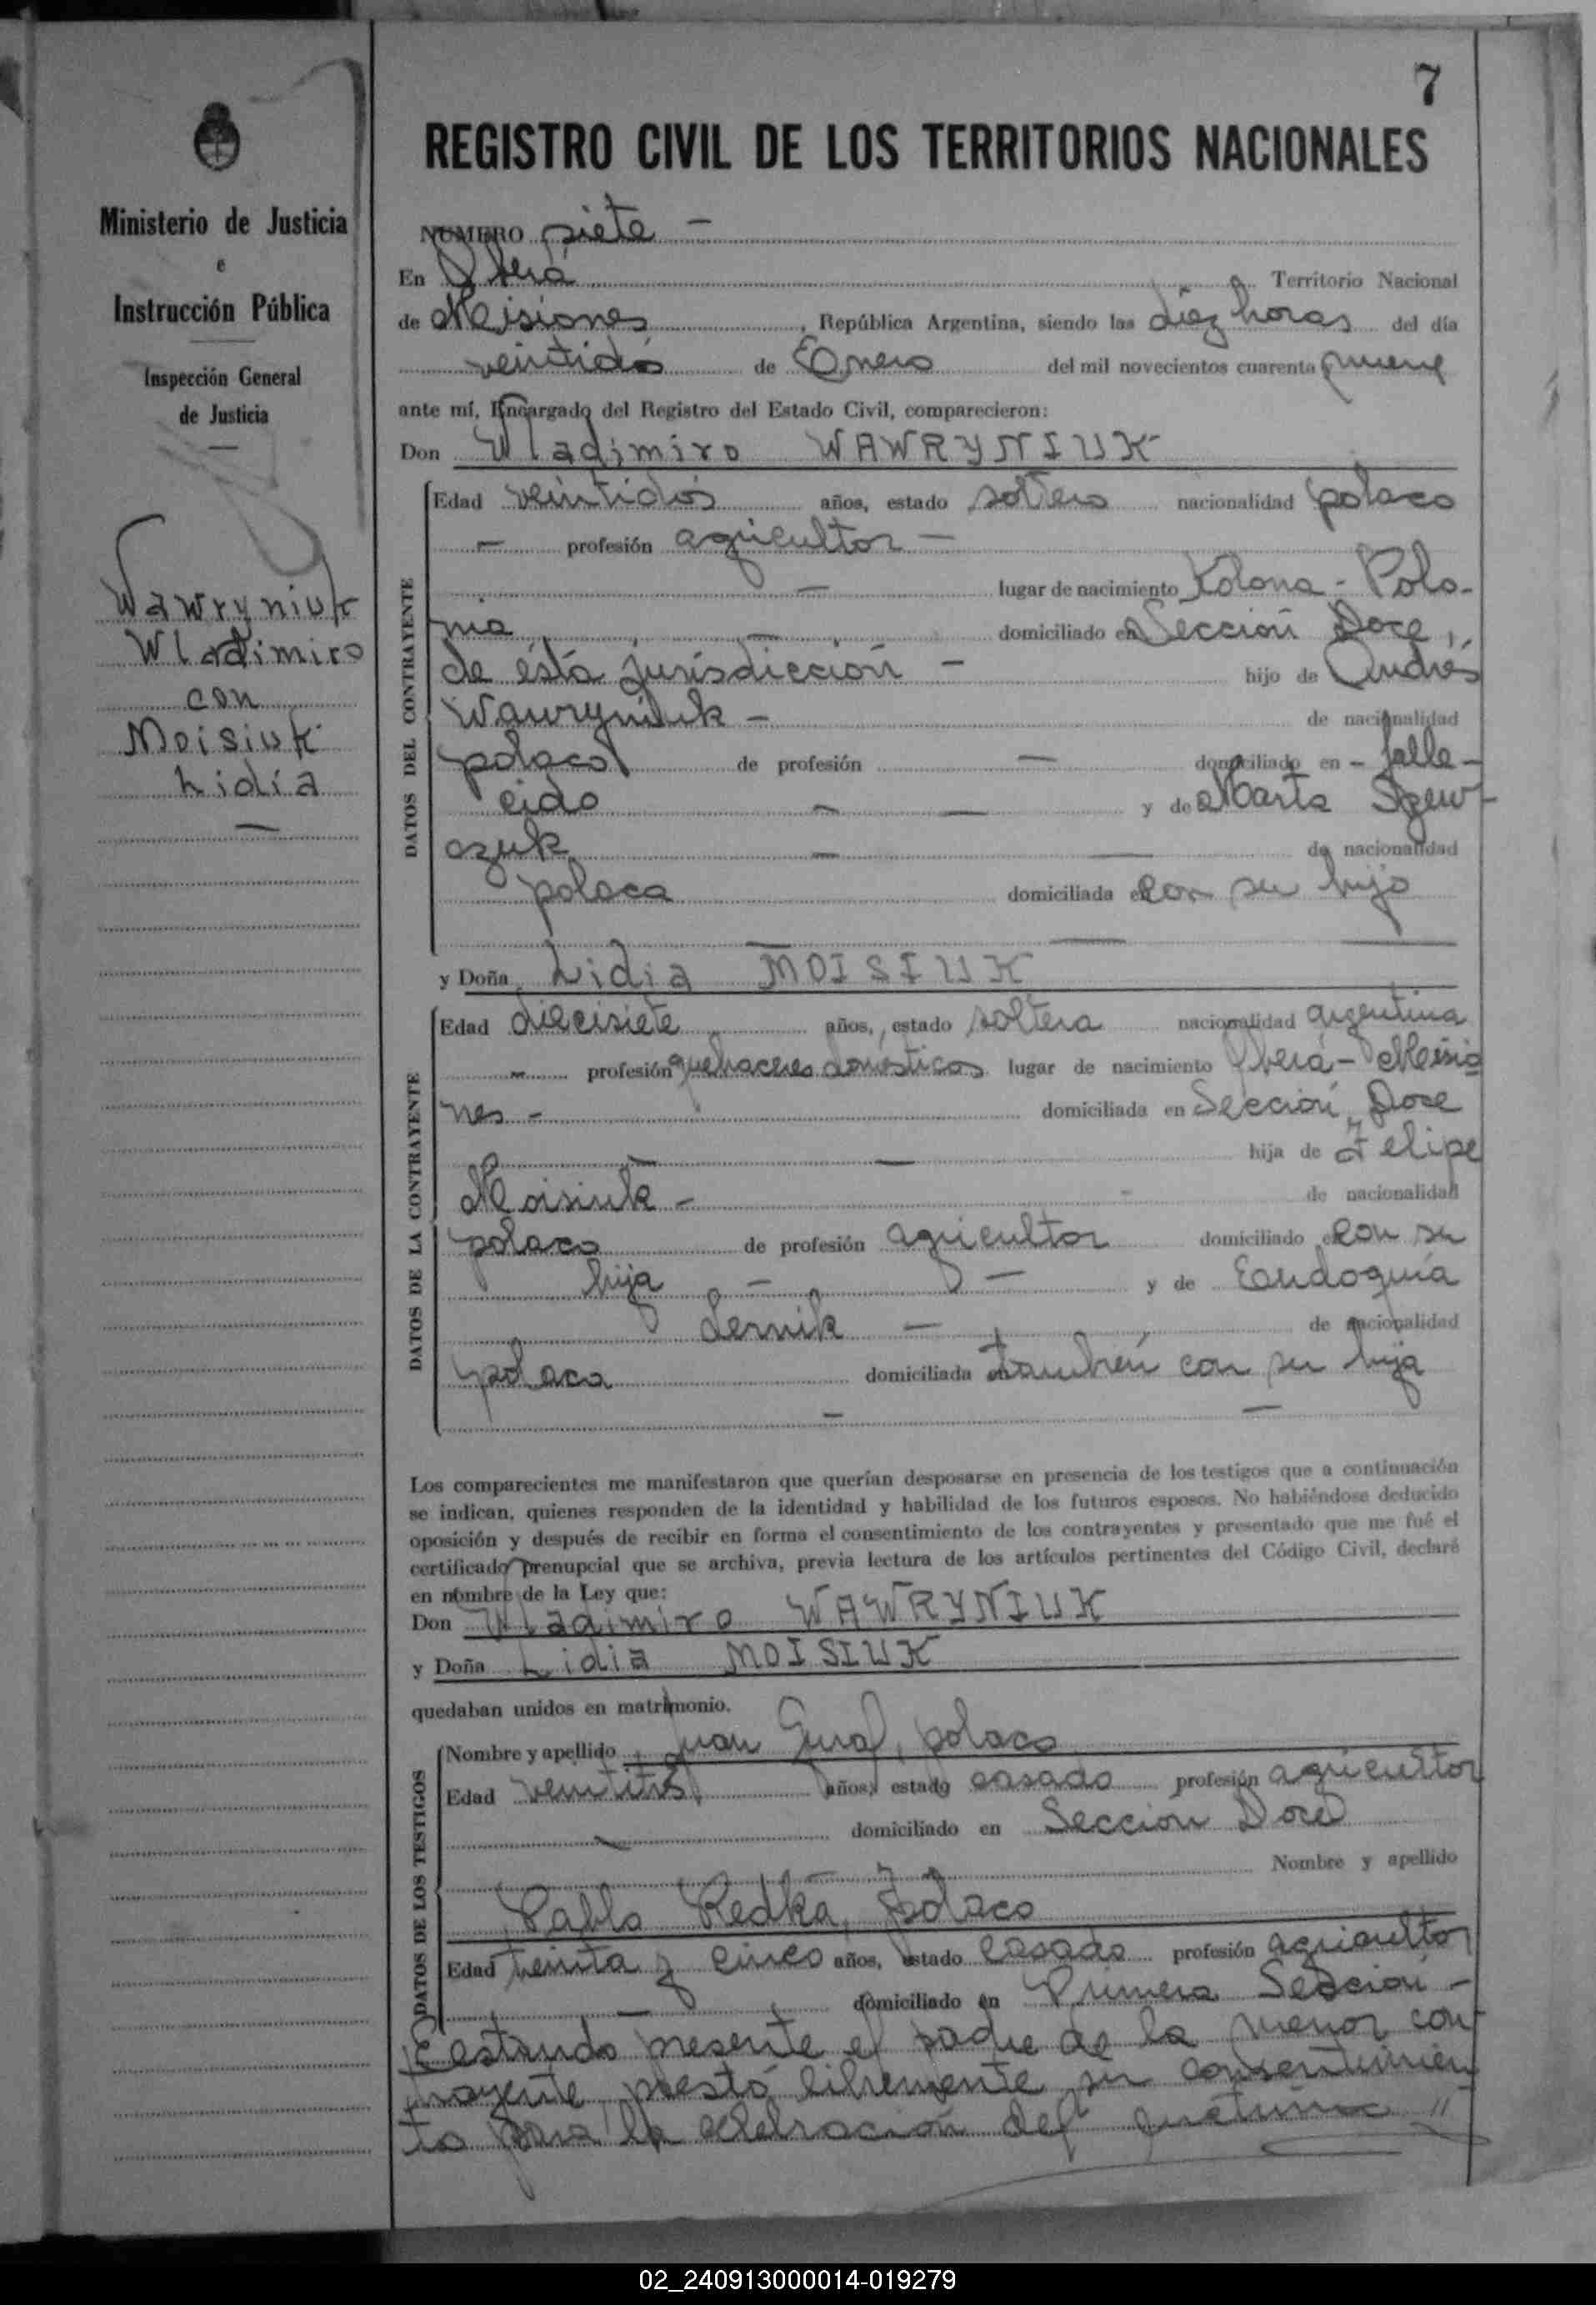 7
REGISTRO CIVIL DE LOS TERRITORIOS NACIONALES
Ministerio de Justicia
e
Instrucción Pública
Inspección General
de Justicia
Wawryniuk
Wladimiro
con
Moisiuk
Lidia
NUMERO siete -
En Oberá Territorio Nacional
de Misiones, República Argentina, siendo las diez horas del día
veintidós de Enero del mil novecientos cuarenta y nueve
ante mí, Encargado del Registro del Estado Civil, comparecieron:
Don Wladimiro WAWRYNIUK
DATOS DEL CONTRAYENTE
Edad veintidós años, estado soltero nacionalidad polaco
- profesión agricultor -
- lugar de nacimiento Kolona - Polo-
nia - domiciliado en Sección Doce,
de ésta jurisdicción - hijo de Andrés
Wawryniuk - de nacionalidad
polaco de profesión - domiciliado en - falle-
cido - - y de Marta
czuk - - de nacionalidad
polaca domiciliada en con su hijo
y Doña Lidia MOISIUK
DATOS DE LA CONTRAYENTE
Edad diecisiete años, estado soltera nacionalidad argentina
- profesión quehaceres domésticos lugar de nacimiento Oberá - Misio
nes - domiciliada en Sección Doce
- - hija de Felipe
Moisiuk - de nacionalidad
polaco de profesión agricultor domiciliado en con su
hija - - y de Eudoquia
Lernik - de nacionalidad
polaca domiciliada en también con su hija
- -
Los comparecientes me manifestaron que querían desposarse en presencia de los testigos que a continuación
se indican, quienes responden de la identidad y habilidad de los futuros esposos. No habiéndose deducido
oposición y después de recibir en forma el consentimiento de los contrayentes y presentado que me fué el
certificado prenupcial que se archiva, previa lectura de los artículos pertinentes del Código Civil, declaré
en nombre de la Ley que:
Don Wladimiro WAWRYNIUK
y Doña Lidia MOISIUK
quedaban unidos en matrimonio.
DATOS DE LOS TESTIGOS
Nombre y apellido Juan Gural, polaco
Edad veintitrés años, estado casado profesión agricultor
- domiciliado en Sección Doce
Nombre y apellido
Pablo Redka, polaco
Edad treinta y cinco años, estado casado profesión agricultor
- domiciliado en Primera Sección -
Estando presente el padre de la menor con
trayente prestó libremente su consentimien
to para la celebración del
02_240913000014-019279